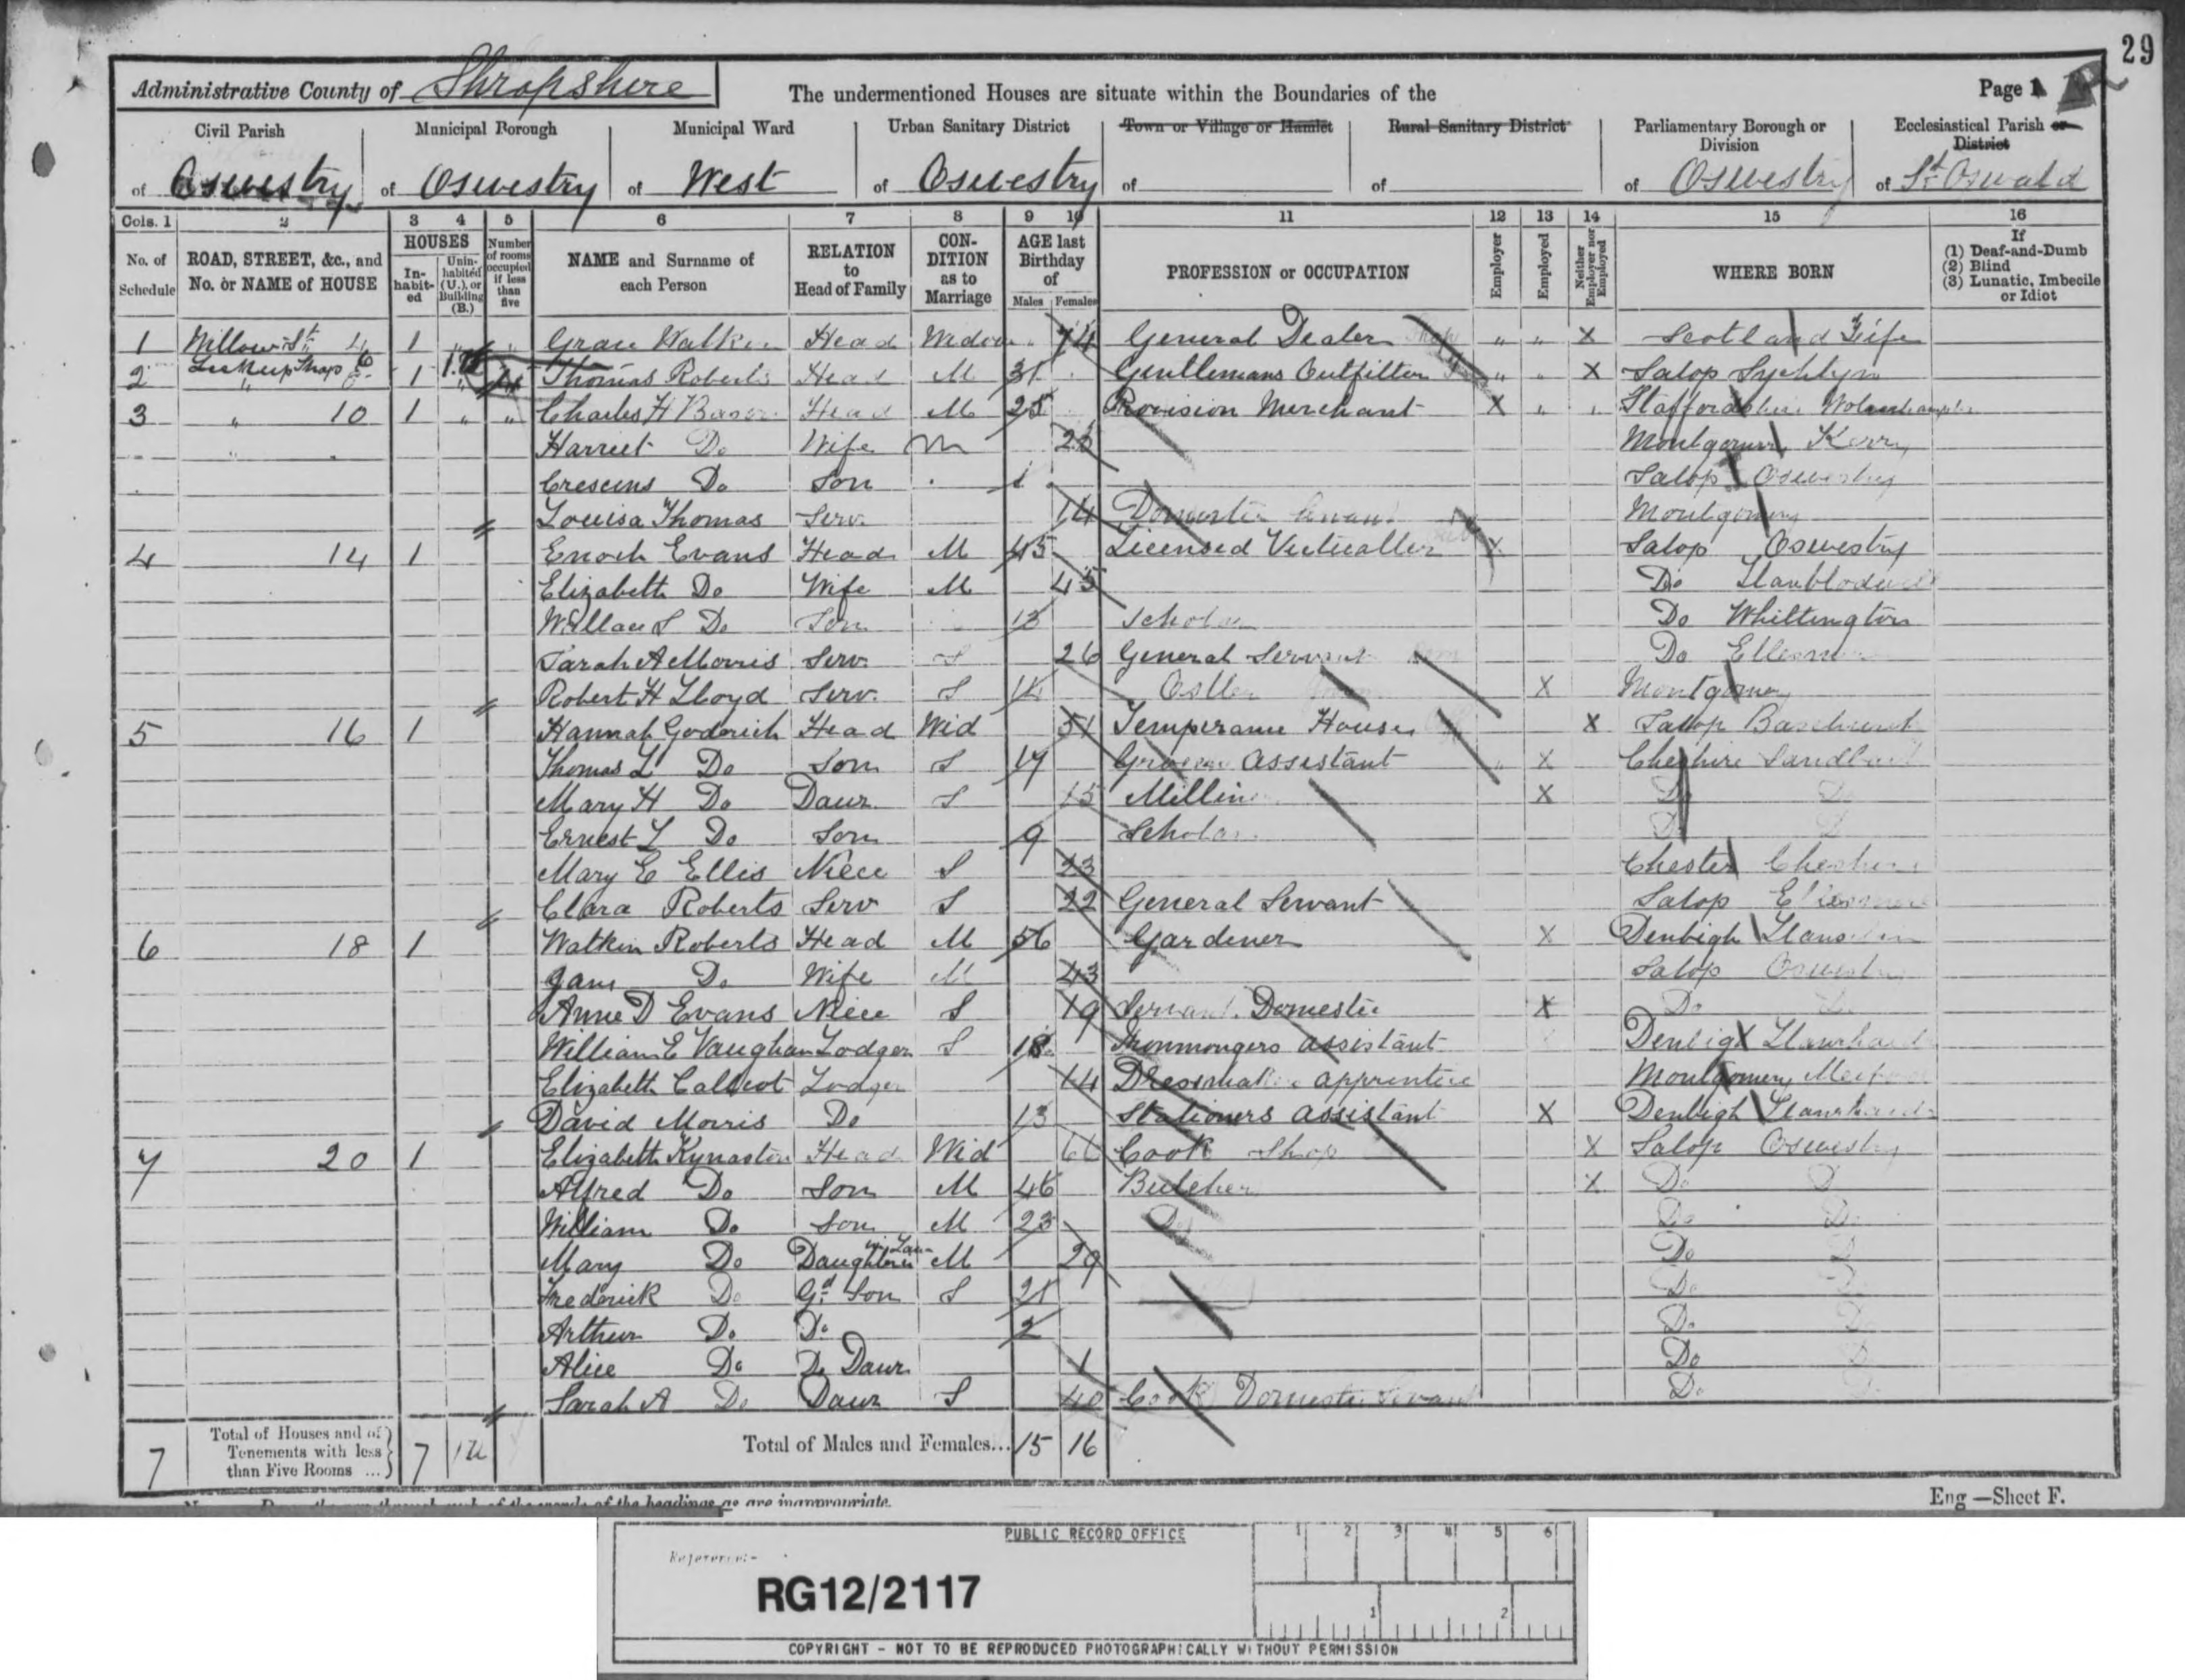 29
Administrative County of Shropshire
The undermentioned Houses are situate within the Boundaries of the
Page 1
Civil Parish of Oswestry
Municipal Borough of Oswestry
Municipal Ward of West
Urban Sanitary District of Oswestry
Town or Village or Hamlet of
Rural Sanitary District of
Parliamentary Borough or Division of Oswestry
Ecclesiastical Parish or District of St Oswald
Cols. 1 2 3 4 5 6 7 8 9 10 11 12 13 14 15 16
No. of Schedule
ROAD, STREET, &c., and No. or NAME of HOUSE
HOUSES
In-habit-ed
Unin-habited (U.), or Building (B.)
Number of rooms occupied if less than five
NAME and Surname of each Person
RELATION to Head of Family
CON-DITION as to Marriage
AGE last Birthday of
Males Females
PROFESSION or OCCUPATION
Employer
Employed
Neither Employer nor Employed
WHERE BORN
If (1) Deaf-and-Dumb (2) Blind (3) Lunatic, Imbecile or Idiot
1 Willow St 4 1 " " Grace Walker Head Widow " 74 General Dealer " " X Scotland Fife
2 Lockup Shop 6 1 Thomas Roberts Head M 31 Gentlemans Outfitter " " X Salop
3 " 10 1 " " Charles H Head M 25 Provision Merchant X " " Staffordshire Wolverhampton
Harriet Do Wife M Montgomery Kerry
Crescens Do Son 1 Salop Oswestry
Louisa Thomas Serv. 14 Domestic Servant Montgomery
4 14 1 Enoch Evans Head M 45 Licensed Victualler X Salop Oswestry
Elizabeth Do Wife M 45 Do Llanblodwell
Do Son 13 Scholar Do Whittington
Sarah A Morris Serv. S 26 General Servant Do Ellesmere
Robert H Lloyd Serv. S 14 Ostler X Montgomery
5 16 1 Hannah Goderich Head Wid 51 Temperance House X Salop Baschurch
Thomas L Do Son S 17 Grocers Assistant X Cheshire Sandbach
Mary H Do Daur S 15 Milliner X Do Do
Ernest L Do Son 9 Scholar Do Do
Mary E Ellis Niece S 23 Chester Cheshire
Clara Roberts Serv S 22 General Servant Salop Ellesmere
6 18 1 Watkin Roberts Head M 56 Gardener X Denbigh
Jane Do Wife M 43 Salop Oswestry
Anne D Evans Niece S 19 Servant Domestic X Do Do
William E Vaughan Lodger S 18 Ironmongers assistant Denbigh
Elizabeth Lodger 14 Dressmaker apprentice Montgomery
David Morris Do 13 Stationers assistant X Denbigh
7 20 1 Elizabeth Kynaston Head Wid 66 Cook Shop X Salop Oswestry
Alfred Do Son M 46 Butcher X Do D
William Do Son M 23 Do Do Do
Mary Do Daughter in Law M 29 Do D
Frederick Do Gd Son S 21 Do D
Arthur Do Do 2 Do Do
Alice Do Do Daur 1 Do D
Sarah A Do Daur S 40 Cook Domestic Servant Do
7 Total of Houses and of Tenements with less than Five Rooms ... 7 1U
Total of Males and Females... 15 16
Eng —Sheet F.
PUBLIC RECORD OFFICE
1 2 3 4 5 6
Reference:-
RG12/2117
1 2
COPYRIGHT - NOT TO BE REPRODUCED PHOTOGRAPHICALLY WITHOUT PERMISSION